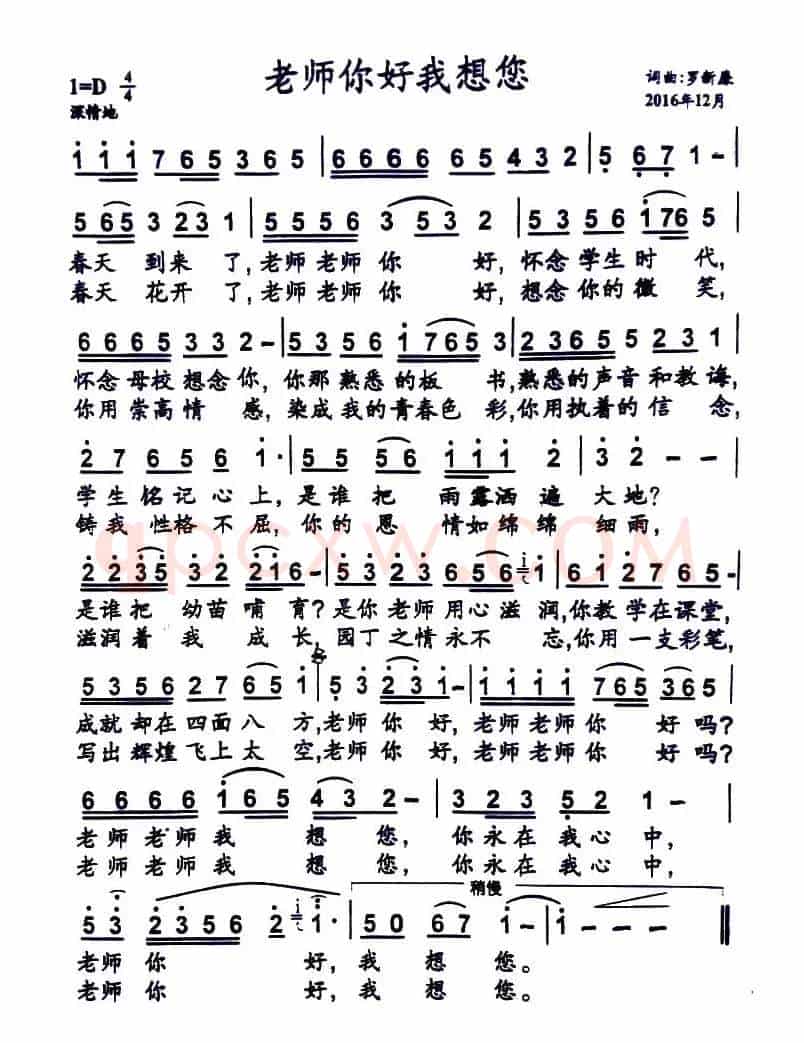 老师你好我想您
1=D 4/4
深情地
词曲:罗新
2016年12月
1 1 1 7 6 5 3 6 5 | 6 6 6 6 6 5 4 3 2 | 5 6 7 1 - |
5 6 5 3 2 3 1 | 5 5 5 6 3 5 3 2 | 5 5 5 6 1 7 6 5 |
春天 到来 了, 老师 老师 你 好, 怀念 学生 时 代,
春天 花开 了, 老师 老师 你 好, 想念 你的 微 笑,
6 6 6 5 3 3 2 - | 5 3 5 6 1 7 6 5 3 | 2 3 6 5 5 2 3 1 |
怀念 母校 想念 你, 你那 熟悉 的板 书, 熟悉的声音和教诲,
你用 崇高 情 感, 染成 我的青春色 彩, 你用执着的信 念,
2 7 6 5 6 1· | 5 5 5 6 1 1 1 2 | 3 2 - - |
学生 铭记 心上, 是谁 把 雨露洒 遍 大地?
铸我 性格 不 屈, 你的 恩 情如绵绵 细雨,
2 2 3 5 3 2 2 1 6 - | 5 3 2 3 6 5 6 i 1 | 6 1 2 7 6 5 - |
是谁把 幼苗 哺 育? 是你老师用心滋 润, 你教学在课堂,
滋润着 我 成 长, 园丁之情永不 忘, 你用一支彩笔,
5 3 5 6 2 7 6 5 1 | 5 3 2 3 1 - | 1 1 1 1 7 6 5 3 6 5 |
成就却在四面八 方, 老师 你 好, 老师老师你 好吗?
写出辉煌飞上太 空, 老师 你 好, 老师老师你 好吗?
6 6 6 6 1 6 5 4 3 2 - | 3 2 3 2 1 - |
老师 老师 我 想 您, 你永在 我心 中,
老师 老师 我 想 您, 你永在 我心 中,
稍慢
5 3 2 3 5 6 2 i 1· | 5 0 6 7 1 - | 1 - - - ‖
老师 你 好, 我 想 您。
老师 你 好, 我 想 您。
qpcxw.com